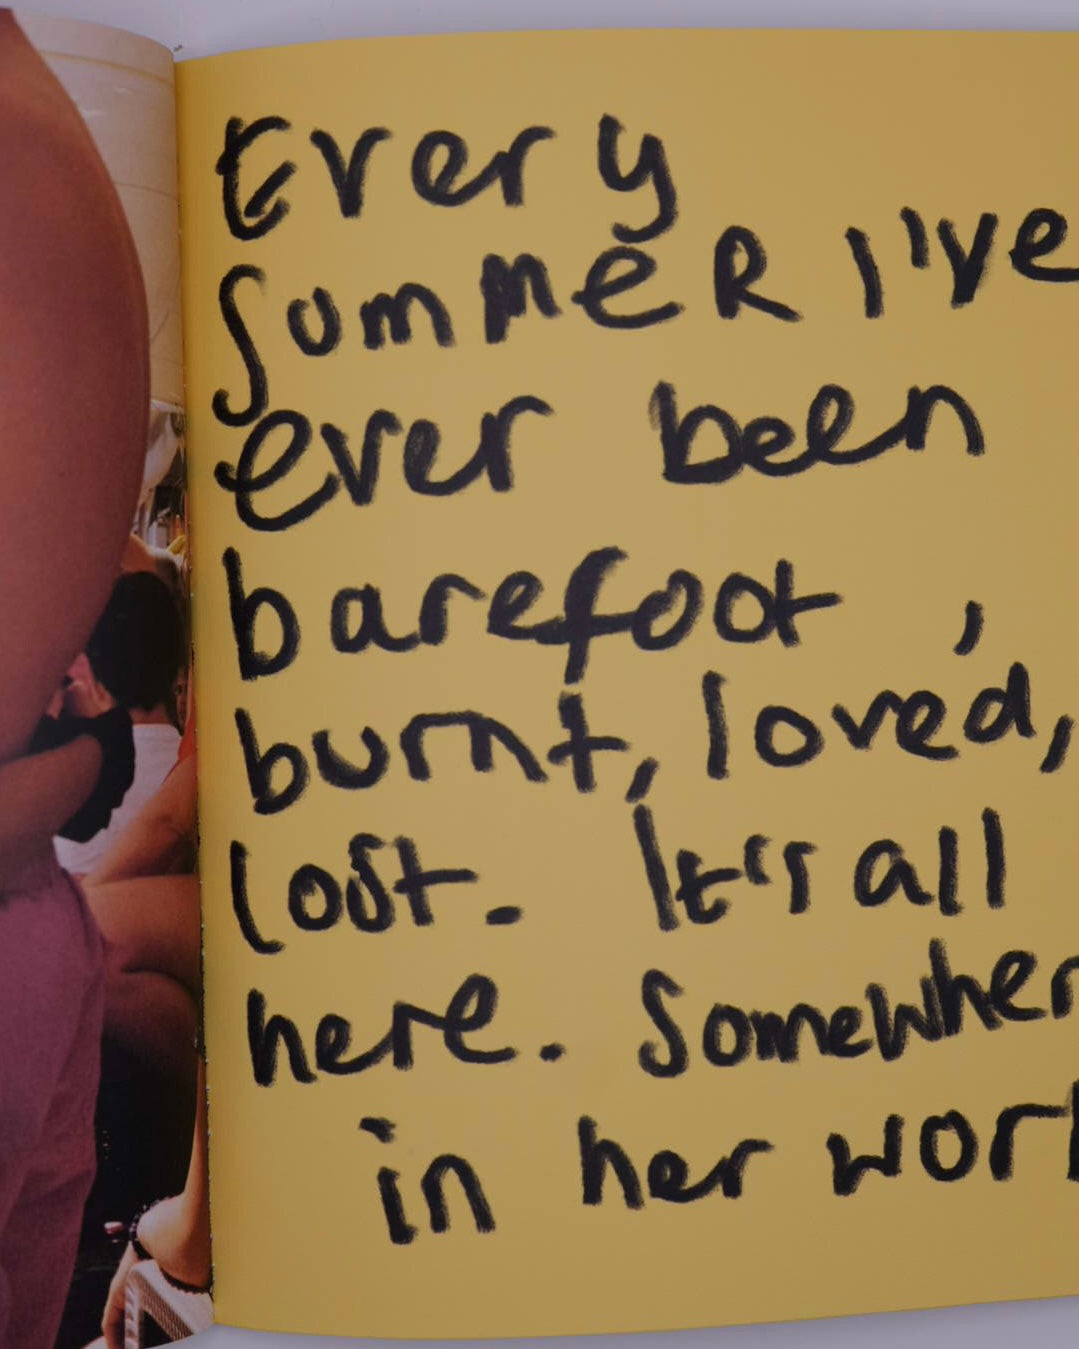 Every
Summer I've
ever been
barefoot ,
burnt, loved,
lost. It's all
here. Somewher
in her work